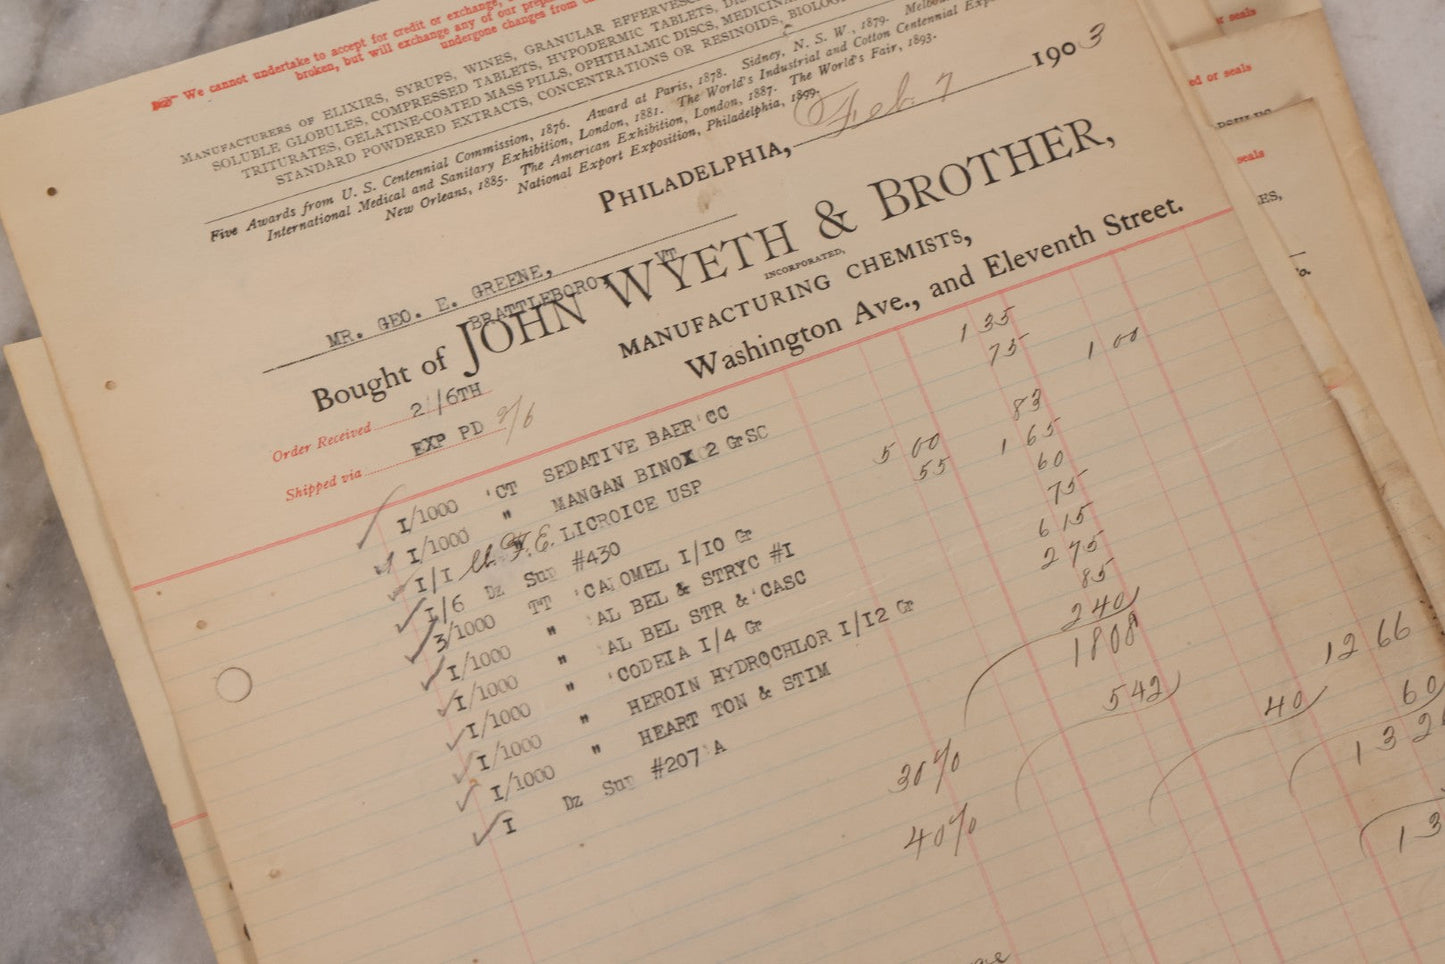 We cannot undertake to accept for credit or exchange,
broken, but will exchange any of our
undergone changes from
MANUFACTURERS OF ELIXIRS, SYRUPS, WINES, GRANULAR
SOLUBLE GLOBULES, COMPRESSED TABLETS, HYPODERMIC TABLETS,
TRITURATES, GELATINE-COATED MASS PILLS, OPHTHALMIC DISCS,
STANDARD POWDERED EXTRACTS, CONCENTRATIONS OR RESINOIDS,
Five Awards from U. S. Centennial Commission, 1876. Award at Paris, 1878. Sidney, N. S. W., 1879.
International Medical and Sanitary Exhibition, London, 1881. The World's Industrial and Cotton Centennial
New Orleans, 1885. The American Exhibition, London, 1887. The World's Fair, 1893.
National Export Exposition, Philadelphia, 1899.
PHILADELPHIA, Feb. 7 1903
MR. GEO. E. GREENE,
BRATTLEBORO, VT
Bought of JOHN WYETH & BROTHER,
INCORPORATED,
MANUFACTURING CHEMISTS,
Washington Ave., and Eleventh Street.
Order Received 2/6TH
Shipped via EXP PD 2/6
I/1000 'CT SEDATIVE BAER'CC 1 35
I/1000 " MANGAN BINOX 2 Gr SC 75 1 00
I/I F.E. LICROICE USP
I/6 Dz Sup #430 5 00 83
3/1000 TT 'CALOMEL I/IO Gr 55 1 65
I/1000 " AL BEL & STRYC #I 60
I/1000 " AL BEL STR & 'CASC 75
I/1000 " 'CODEIA I/4 Gr 6 15
I/1000 " HEROIN HYDROCHLOR I/I2 Gr 2 75
I/1000 " HEART TON & STIM 85
I Dz Sup #207 A 2 40
1808
30% 542 12 66
40% 40 60
1 32
1 3
or seals
ed or seals
seals
ES,